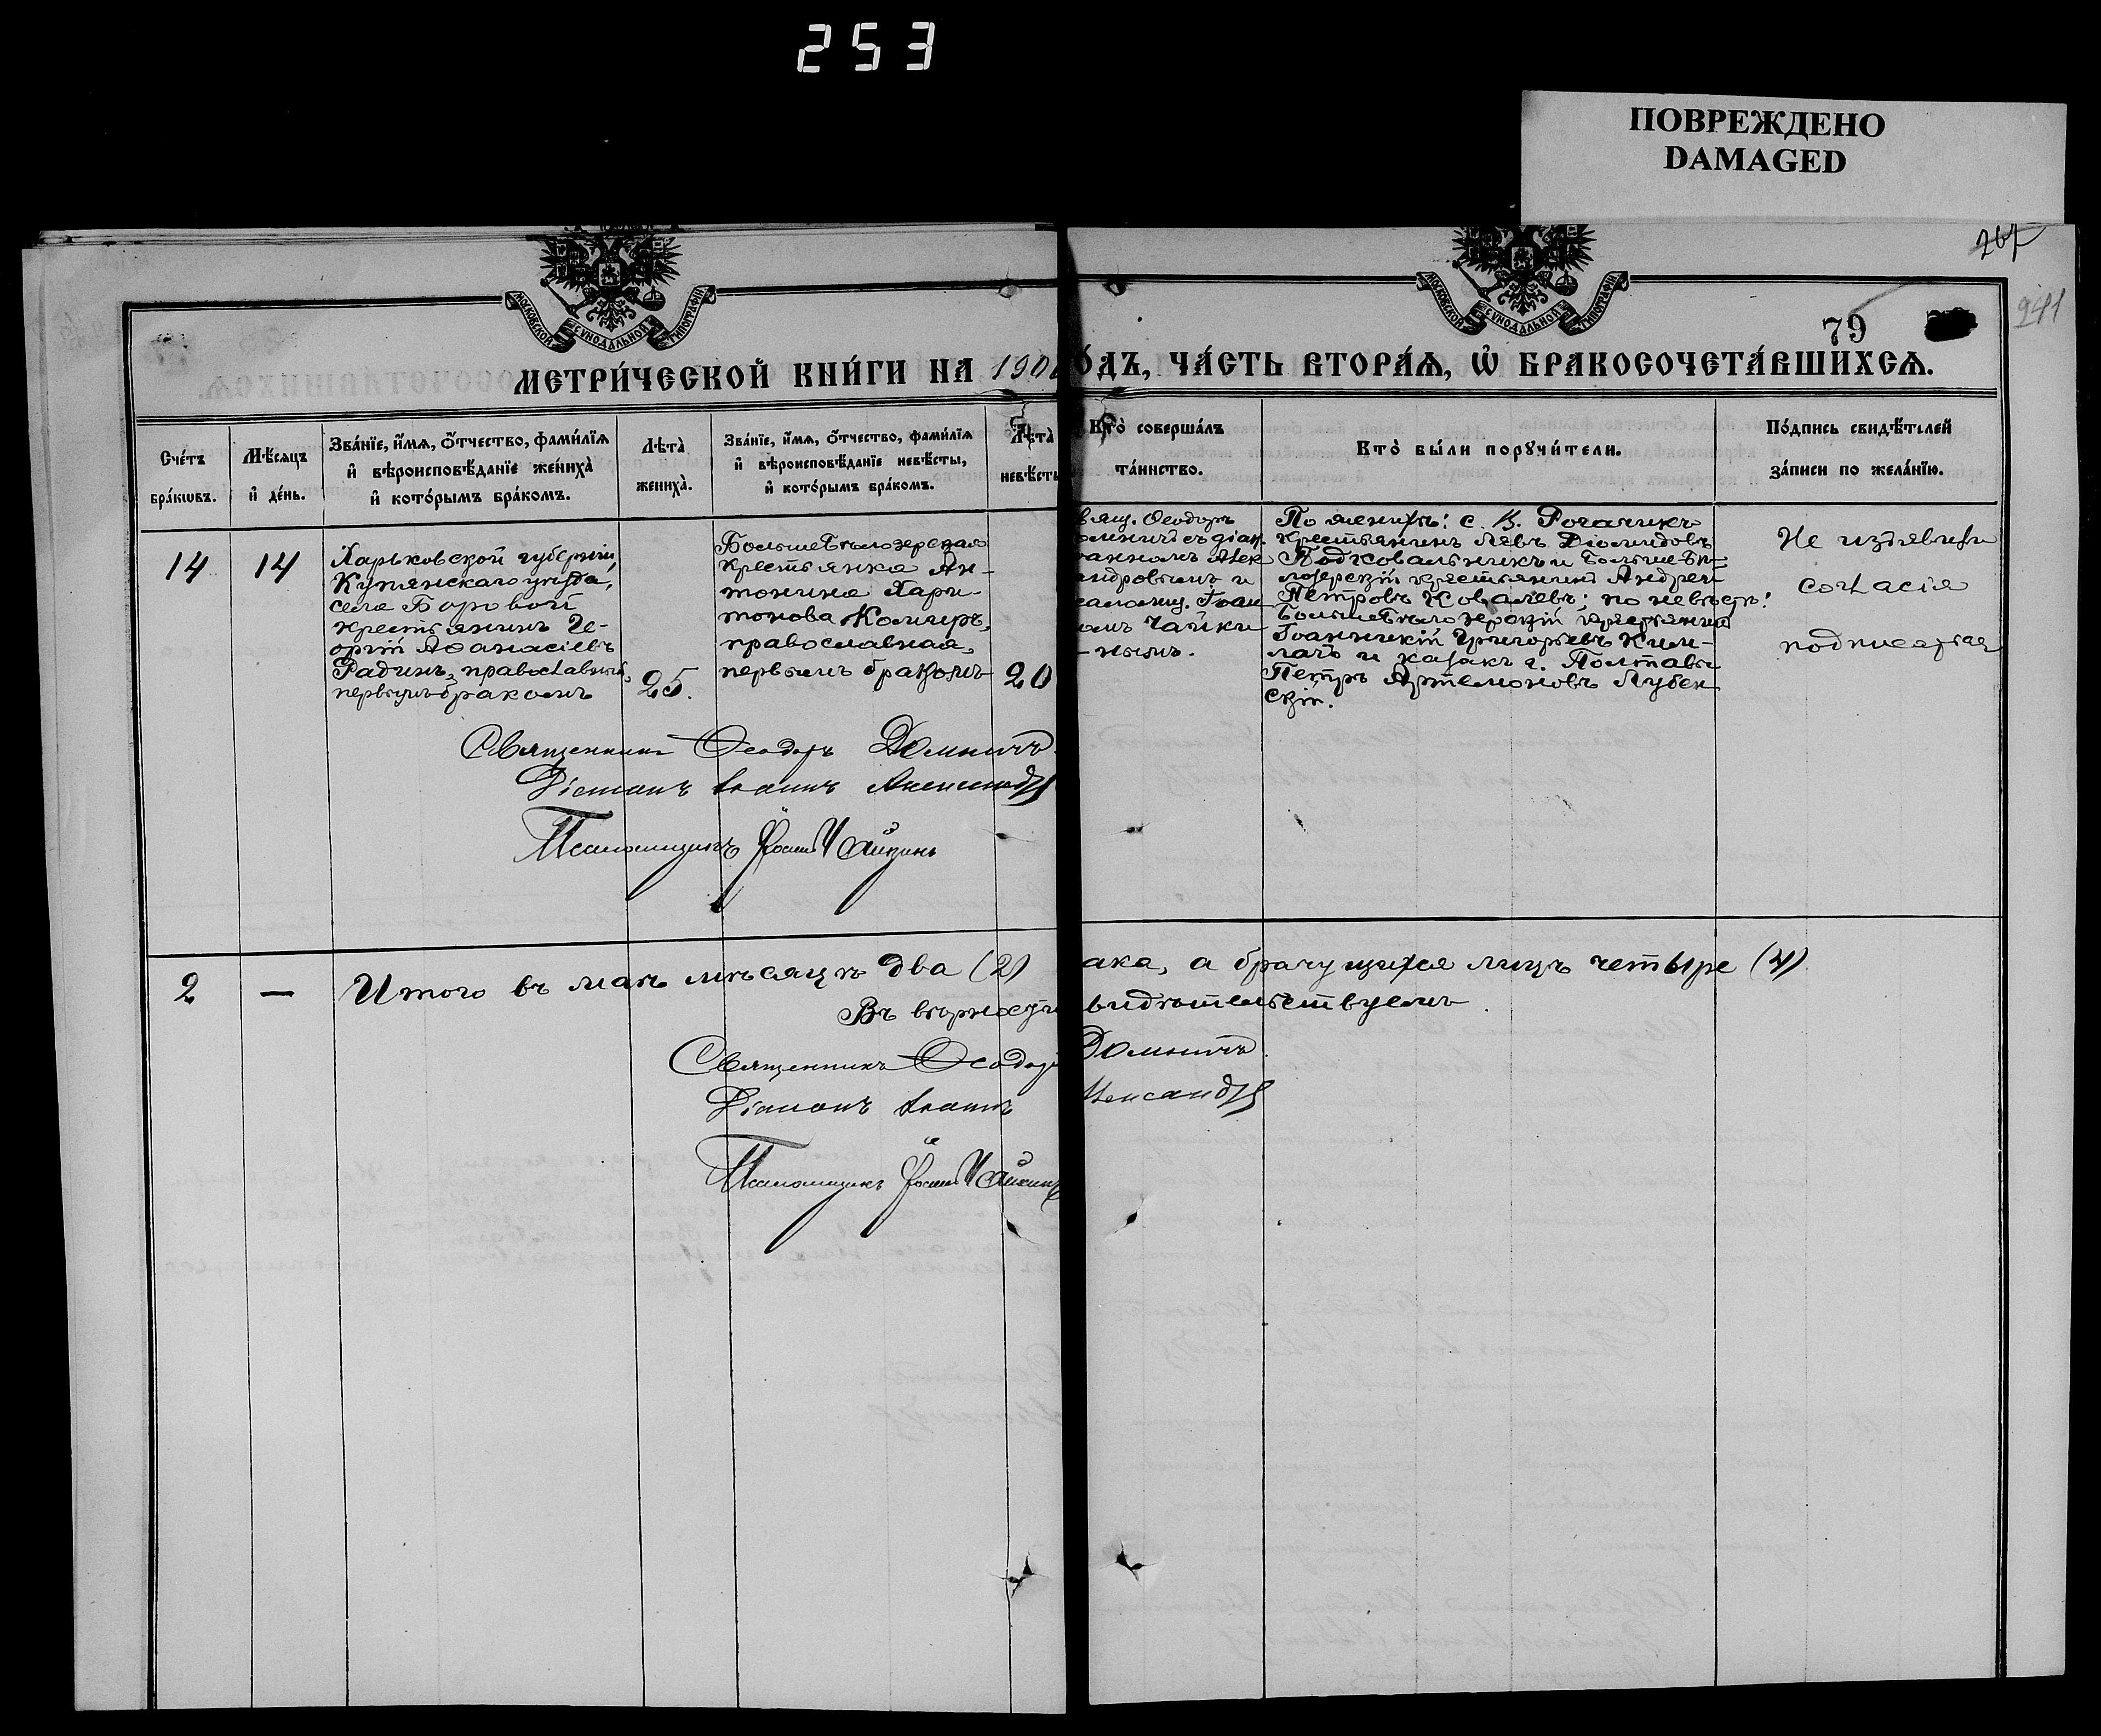 253
ПОВРЕЖДЕНО
DAMAGED
267
МОСКОВСКОЙ СѴНОДАЛЬНОЙ ТИПОГРАФІИ
МОСКОВСКОЙ СѴНОДАЛЬНОЙ ТИПОГРАФІИ
79
941
МЕТРИ́ЧЕСКОЙ КНИ́ГИ НА 190
О́ДЪ, ЧА́СТЬ ВТОРА́Ѧ, Ѿ БРАКОСОЧЕТА́ВШИХСѦ.
Сче́тъ
бра́кѡвъ.
Мѣ́сяцъ
и҆ де́нь.
Зва́нїе, и҆́мѧ, ѻ҆́тчество, фами́лїѧ
и҆ вѣроисповѣ́данїе жениха̀
и҆ кото́рымъ бра́комъ.
Лѣта̀
жениха̀.
Зва́нїе, и҆́мѧ, ѻ҆́тчество, фами́лїѧ
и҆ вѣроисповѣ́данїе невѣ́сты,
и҆ кото́рымъ бра́комъ.
Лѣта̀
невѣ́сты
Кто̀ соверша́лъ
та́инство.
Кто̀ бы́ли порꙋчи́тели.
По́дпись свидѣ́телей
за́писи по жела́нїю.
14
14
Харьковской губерніи,
Купянскаго уѣзда,
села Боровой
крестьянинъ Ге-
оргій Аѳанасіевъ
Радинъ, православный,
первымъ бракомъ
25.
Больше Бѣлозерская
крестьянка Ан-
тонина Хари-
тонова Комиръ,
православная,
первымъ бракомъ
20
вящ. Ѳеодоръ
омничъ съ діак.
оанномъ Алек
андровымъ и
саломщ. Іоан
омъ Чайки
-нымъ.
По женихѣ: с. В. Рогачикъ
крестьянинъ Левъ Діомидовъ
Подковальникъ и Больше-Бѣ-
лозерскій крестьянинъ Андрей
Петровъ Ковалевъ; по невѣстѣ:
Больше Бѣлозерскій крестьянинъ
Іоанникій Григорьевъ Ким-
лачъ и казакъ г. Полтавы
Петръ Артемоновъ Лубен
скій.
Не изъявили
согласія
подписаться
Священникъ Ѳеодоръ Домничъ
Діаконъ Іоаннъ Александр
Псаломщикъ Іоаннъ Чайкинъ
2
—
Итого въ маѣ мѣсяцѣ два (2)
ака, а брачущихся лицъ четыре (4)
Въ вѣрности
видѣтельствуемъ.
Священникъ Ѳеодоръ
Домничъ
Діаконъ Іоаннъ
лександр
Псаломщикъ Іоаннъ Чайкинъ